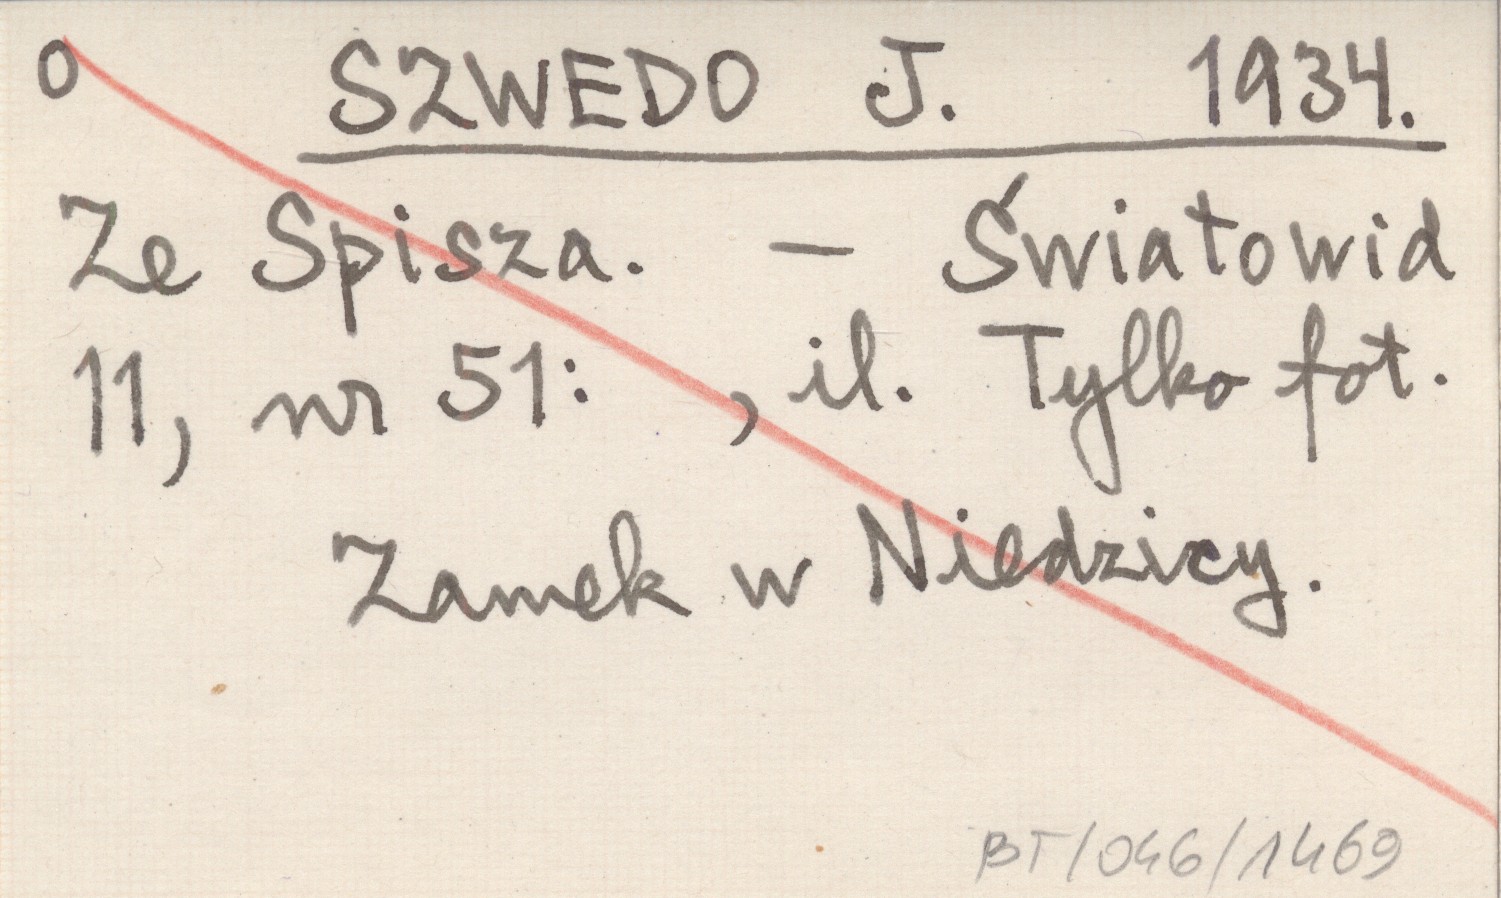 0 SZWEDO J. 1934.
Ze Spisza. — Światowid
11, nr 51: , il. Tylko fot.
Zamek w Niedzicy.
BT/046/1469